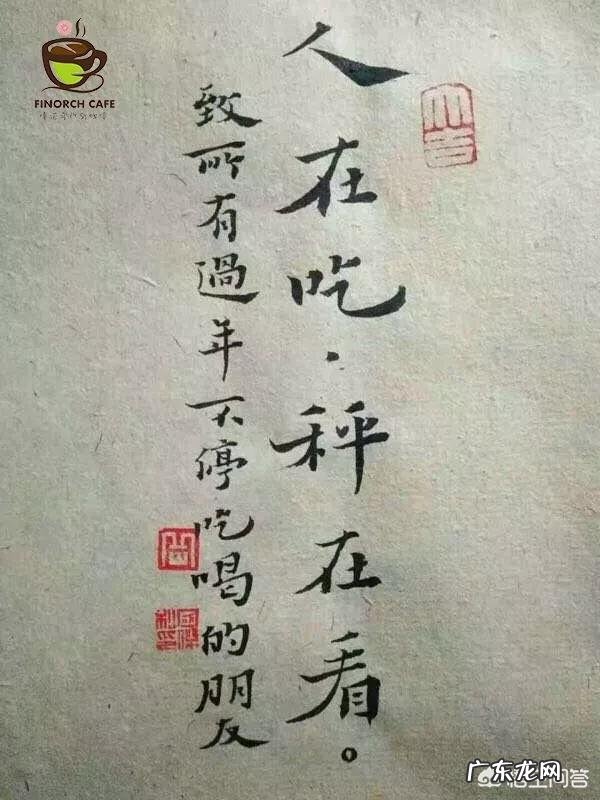 人在吃．秤在看。
致所有過年不停吃喝的朋友
FINORCH CAFE
广东龙网
悟空问答